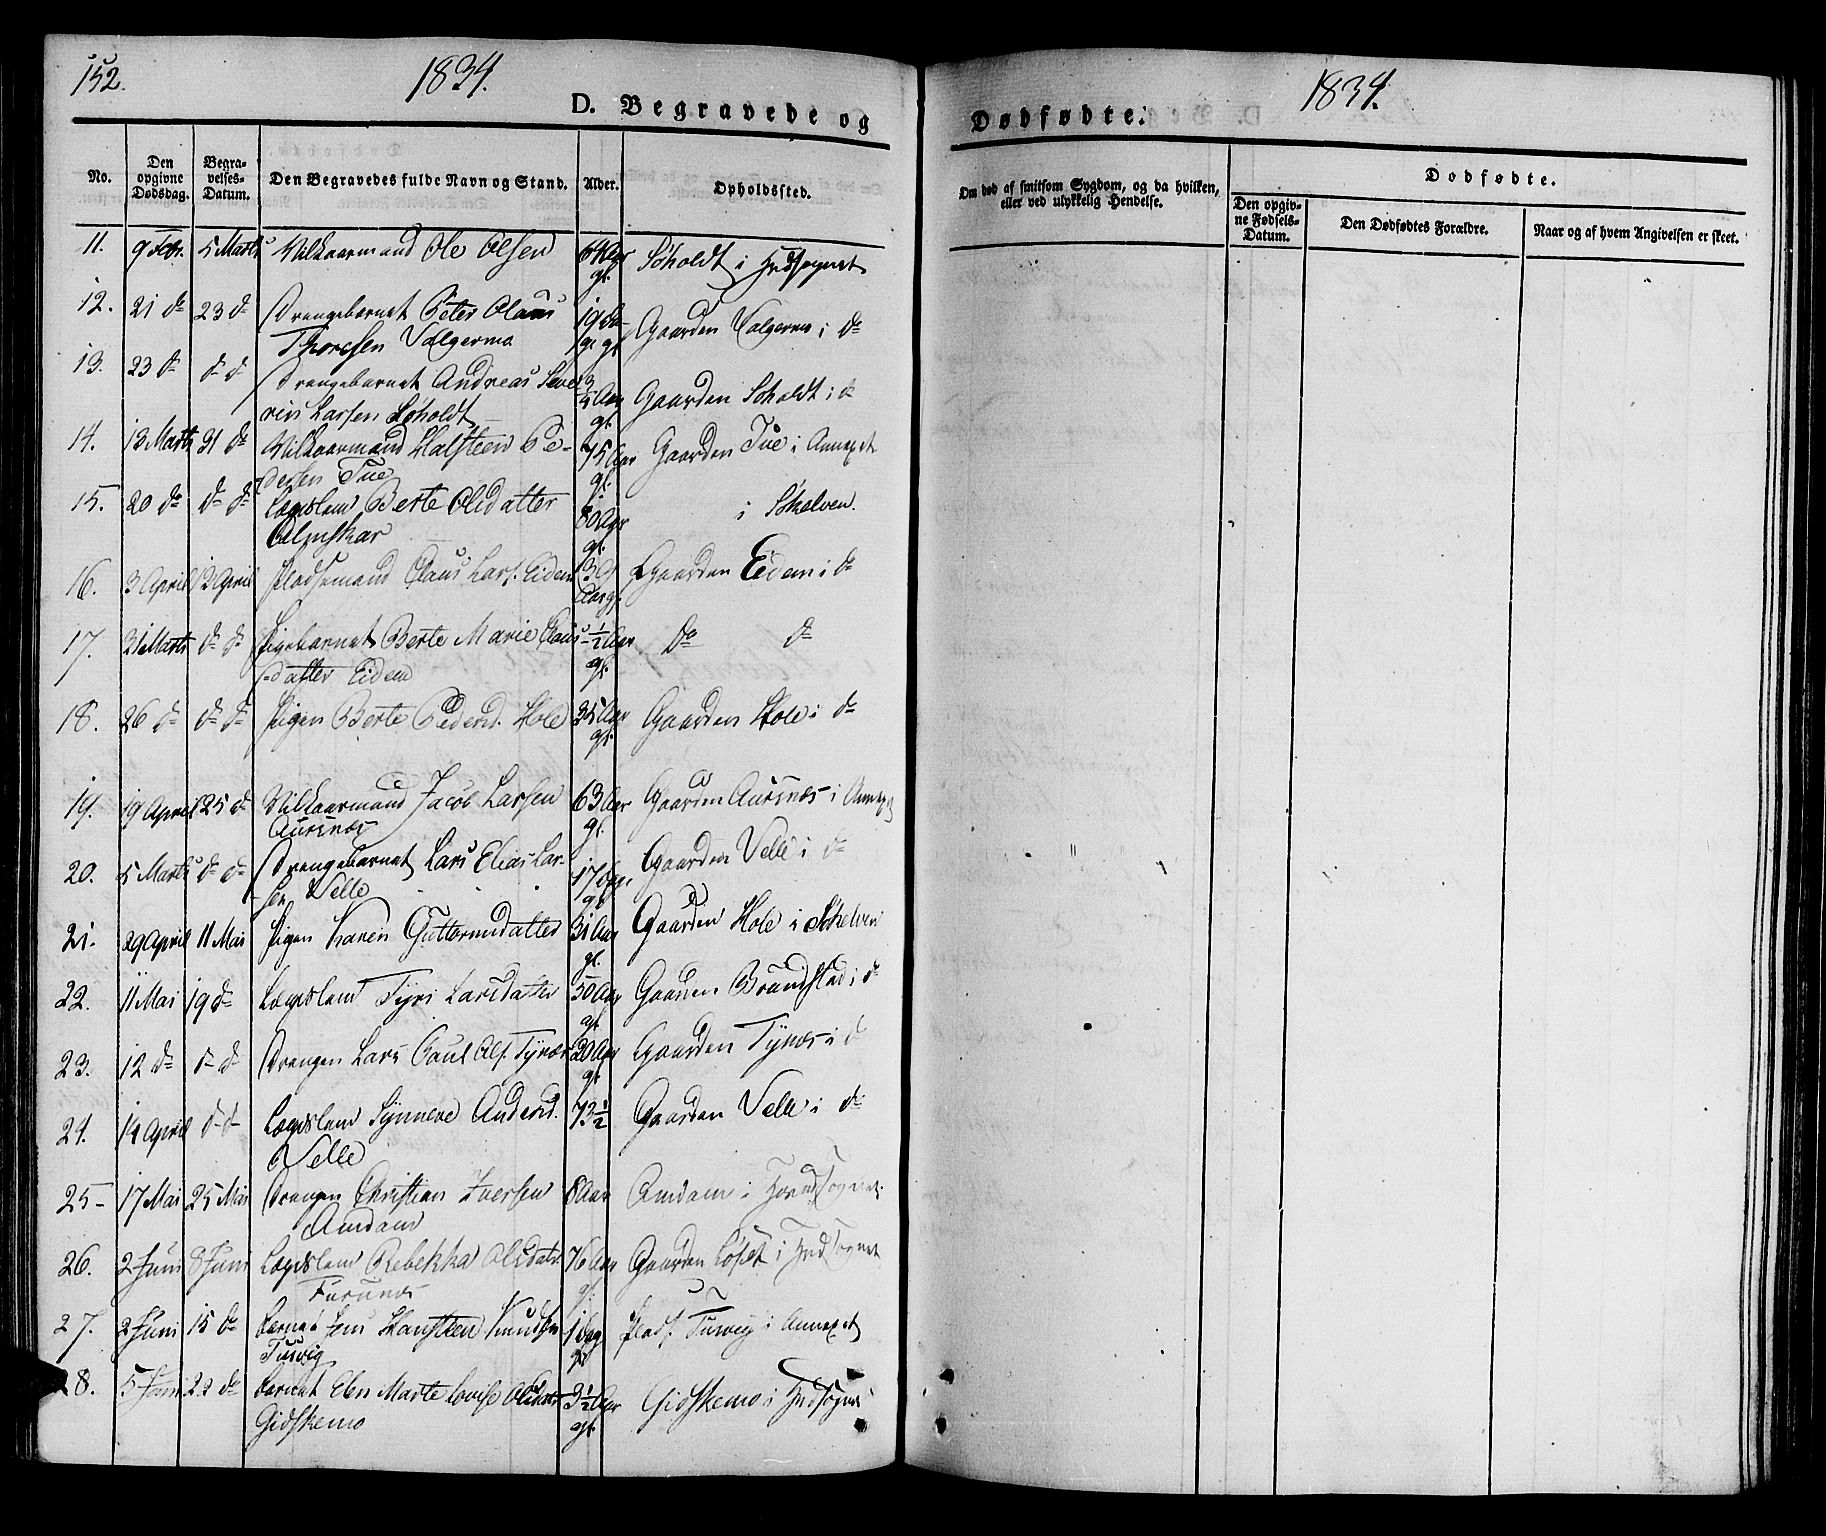 152.
1834.
D. Begravede og
No.
Den opgivne Dødsdag.
Begravelses-Datum.
Den Begravedes fulde Navn og Stand.
Alder.
Opholdssted.
11. 9 Febr. 5 Marts Vilkaarmand Ole Olsen 64 Aar gl. Søholdt i Hvdsognet
12. 21 do 23 do Drengebarnet Peter Olaus
Thoresen Valgermo 19 Da- ge gl. Gaarden Valgermo i do
13. 23 do do do Drengebarnet Andreas Seve
rin Larsen Søholdt Aar gl. Gaarden Søholdt i do
14. 13 Marts 31 do Vilkaarmand Halsteen Pe-
dersen Tue 75 Aar gl. Gaarden Tue i Annexet
15. 20 do do do Lægdslem Berte Olsdatter
80 Aar gl. i Skelven.
16. 3 April 12 April Pladsemand Claus Lars. Eidem 39 Aar gl. Gaarden Eidem i do
17. 31 Marts do do Pigebarnet Berte Marie Claus
datter Eidem ½ Aar gl. do do
18. 26 do do do Pigen Berte Pedersd. Hole 35 Aar gl. Gaarden Hole i do
19. 19 April 25 do Vilkaarmand Jacob Larsen
Aursnæs 63 Aar gl. Gaarden Aursnæs i Annexet
20. 5 Marts do do Drengebarnet Lars Elias Lar-
sen Velle 17 Dage gl. Gaarden Velle i do
21. 29 April 11 Mai Pigen Karen Guttormsdatter 31 Aar gl. Gaarden Hole i Skelven
22. 11 Mai 19 do Lægdslem Tyri Larsdatter 50 Aar gl. Gaarden Brandstad i do
23. 12 do do do Drengen Lars Paul Ols. Tynæs 20 Aar gl. Gaarden Tynæs i do
24. 14 April do do Lægdslem Synneve Andersd.
Velle 73½ Gaarden Velle i do
25- 17 Mai 25 Mai Drengen Christian Iversen
Amdam 8 Aar Amdam i Hovedsognet
26. 2 Juni 8 Juni Lægdslem Rebekka Olsdatr
Furunæs 76 Aar gl. Gaarden Løset i Hvdsognet
27. 2 Juni 15 do Barnet Jens Hansteen Knudsen
Tusvig 1 Dag gl. Plads. Tusvig i Annexet
28. 5 Juni 22 do Barnet Elen Marte Lovise Olsdatr
Gidskemo 3½ Aar gl. Gidskemo i Hvdsognet
1834.
Dødfødte.
Om død af smitsom Sygdom, og da hvilken,
eller ved ulykkelig Hendelse.
Dødfødte.
Den opgiv-
ne Fødsels-
Datum.
Den Dødfødtes Forældre.
Naar og af hvem Angivelsen er skeet.